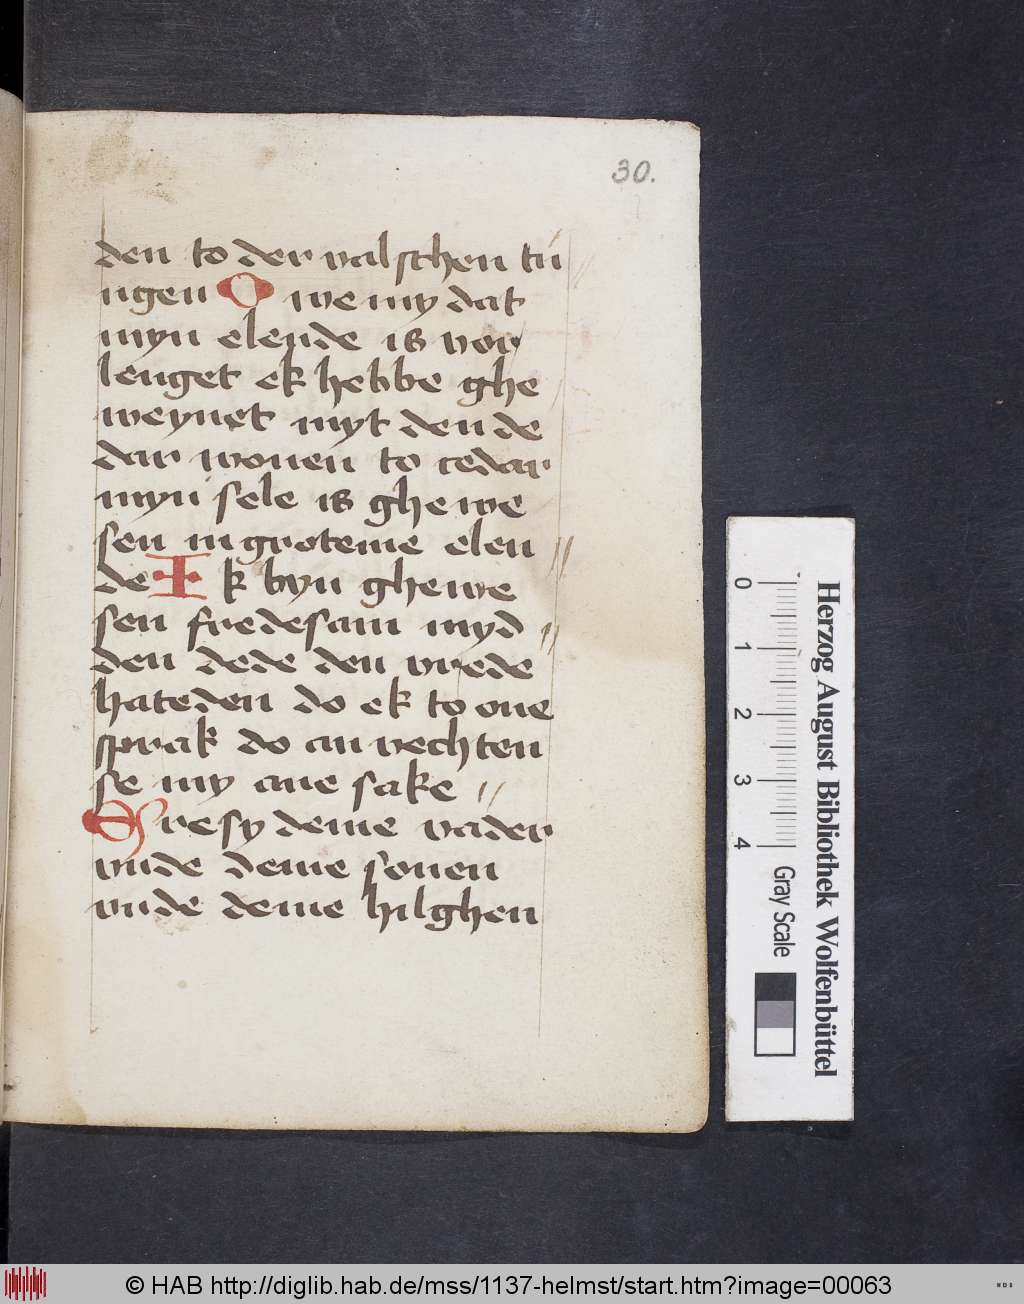 30.
den to der valschen tu
ngen O we my dat
myn elende is vor
lenget ek hebbe ghe
weynet myt den de
dar wonen to cedar
myn sele is ghe we
sen in groteme elen
de Ik byn ghewe
sen fredesam myd
den dede den vrede
hateden do ek to one
sprak do an vechten
se my ane sake
Ere sy deme vader
vnde deme sonen
vnde deme hilghen
Herzog August Bibliothek Wolfenbüttel
0 1 2 3 4 Gray Scale
© HAB http://diglib.hab.de/mss/1137-helmst/start.htm?image=00063